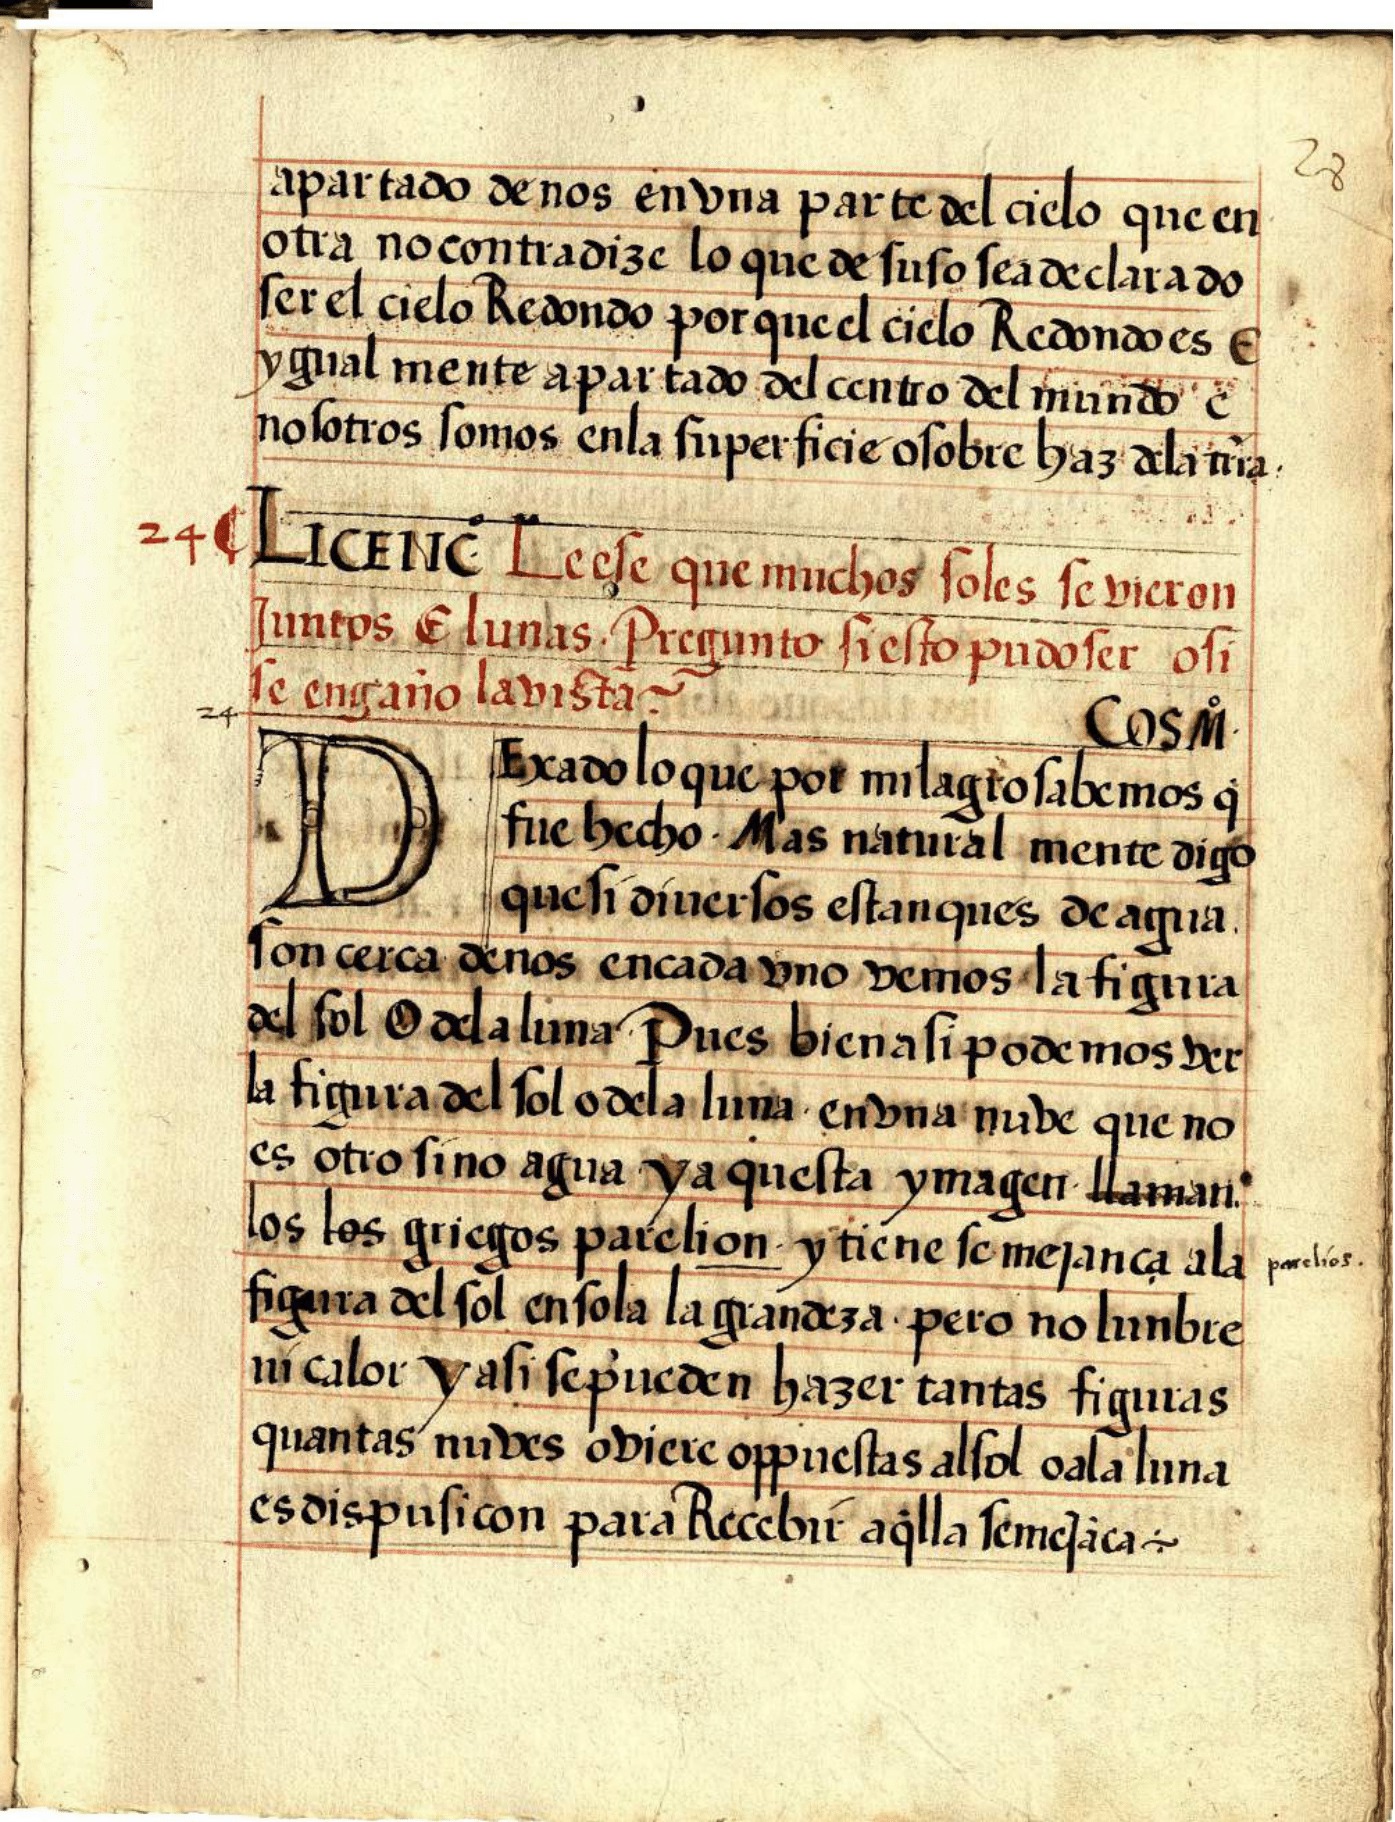 28
apartado de nos en vna parte del cielo que en
otra no contradize lo que de suso sea declarado
ser el cielo Redondo por que el cielo Redondo es E
ygual mente apartado del centro del mundo e
nosotros somos en la superficie o sobre haz de la trr̃a.
24 ¶ LICENC̊ Leese que muchos soles se vieron
Juntos E lunas. Pregunto si esto pudo ser o si
se engaño la vista ~
24
COSM̊.
DExado lo que por milagro sabemos q̇
fue hecho. Mas natural mente digo
que si diuersos estanques de agua.
son cerca de nos en cada vno vemos la figura
del sol O de la luna. Pues bien asi podemos ver
la figura del sol o de la luna. en vna nuve que no
es otro sino agua y a questa ymagen. llaman.
los los griegos parelion. y tiene semejança a la
parelios.
figura del sol en sola la grandeza. pero no lunbre
ni calor y asi se pueden hazer tantas figuras
quantas nuves oviere oppuestas al sol o a la luna
es dispusicon para Recebir aq̇lla semejãca ~